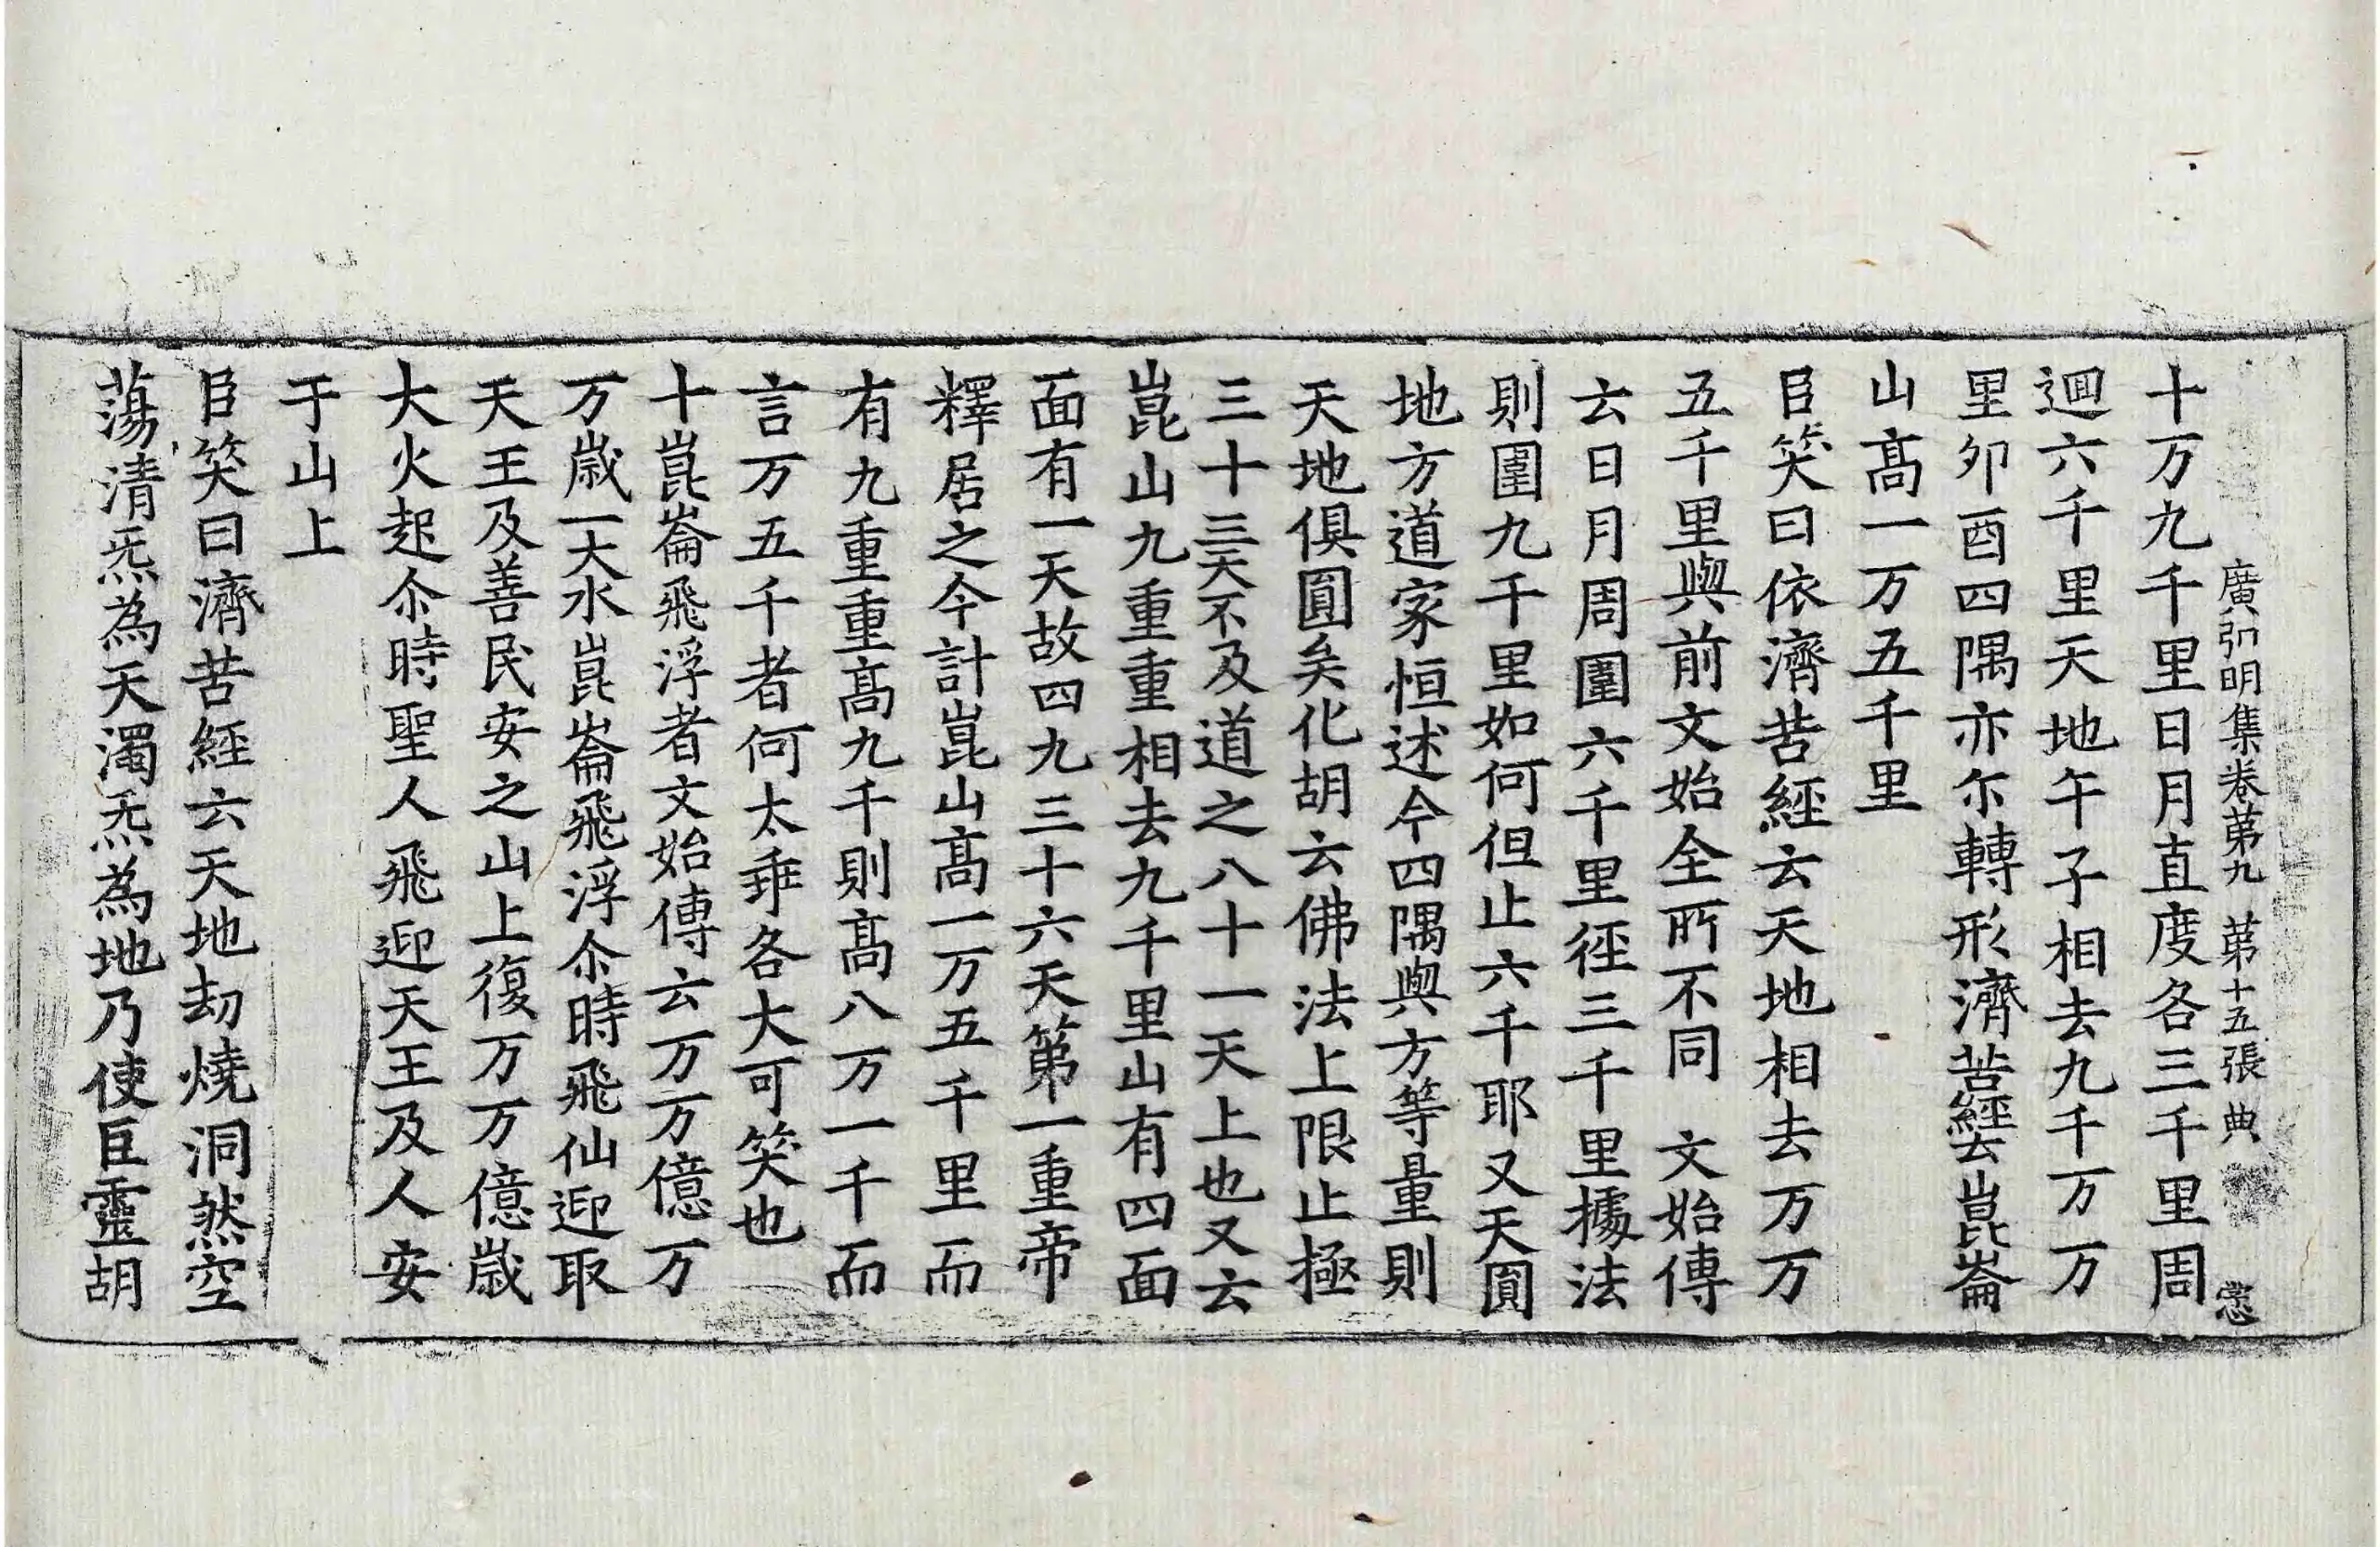 廣弘明集卷苐九 苐十五張 典
十万九千里日月直度各三千里周
迴六千里天地午子相去九千万万
里夘酉四隅亦尒轉形濟苦經云崑崙
山髙一万五千里
臣笑曰依濟苦經云天地相去万万
五千里與前文始全所不同 文始傳
云日月周圍六千里徑三千里據法
則圍九千里如何但止六千耶又天圓
地方道家恒述今四隅與方等量則
天地俱圓矣化胡云佛法上限止極
三十三天不及道之八十一天上也又云
崑山九重重相去九千里山有四面
面有一天故四九三十六天第一重帝
釋居之今計崑山髙一万五千里而
有九重重髙九千則髙八万一千而
言万五千者何太乖各大可笑也
十崑崙飛浮者文始傳云万万億万
万歲一大水崑崙飛浮尒時飛仙迎取
天王及善民安之山上復万万億歲
大火起尒時聖人飛迎天王及人安
于山上
臣笑曰濟苦經云天地劫燒洞然空
蕩清炁為天濁炁為地乃使巨靈胡